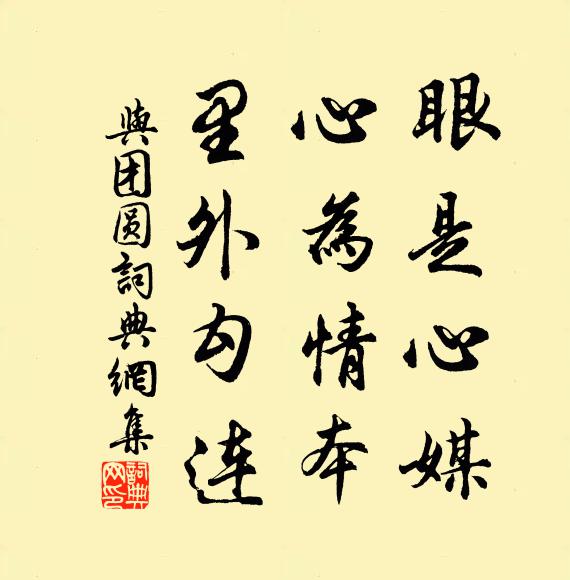 眼是心媒
心為情本
里外勾連
與团圆詞典網集
詞典
网印